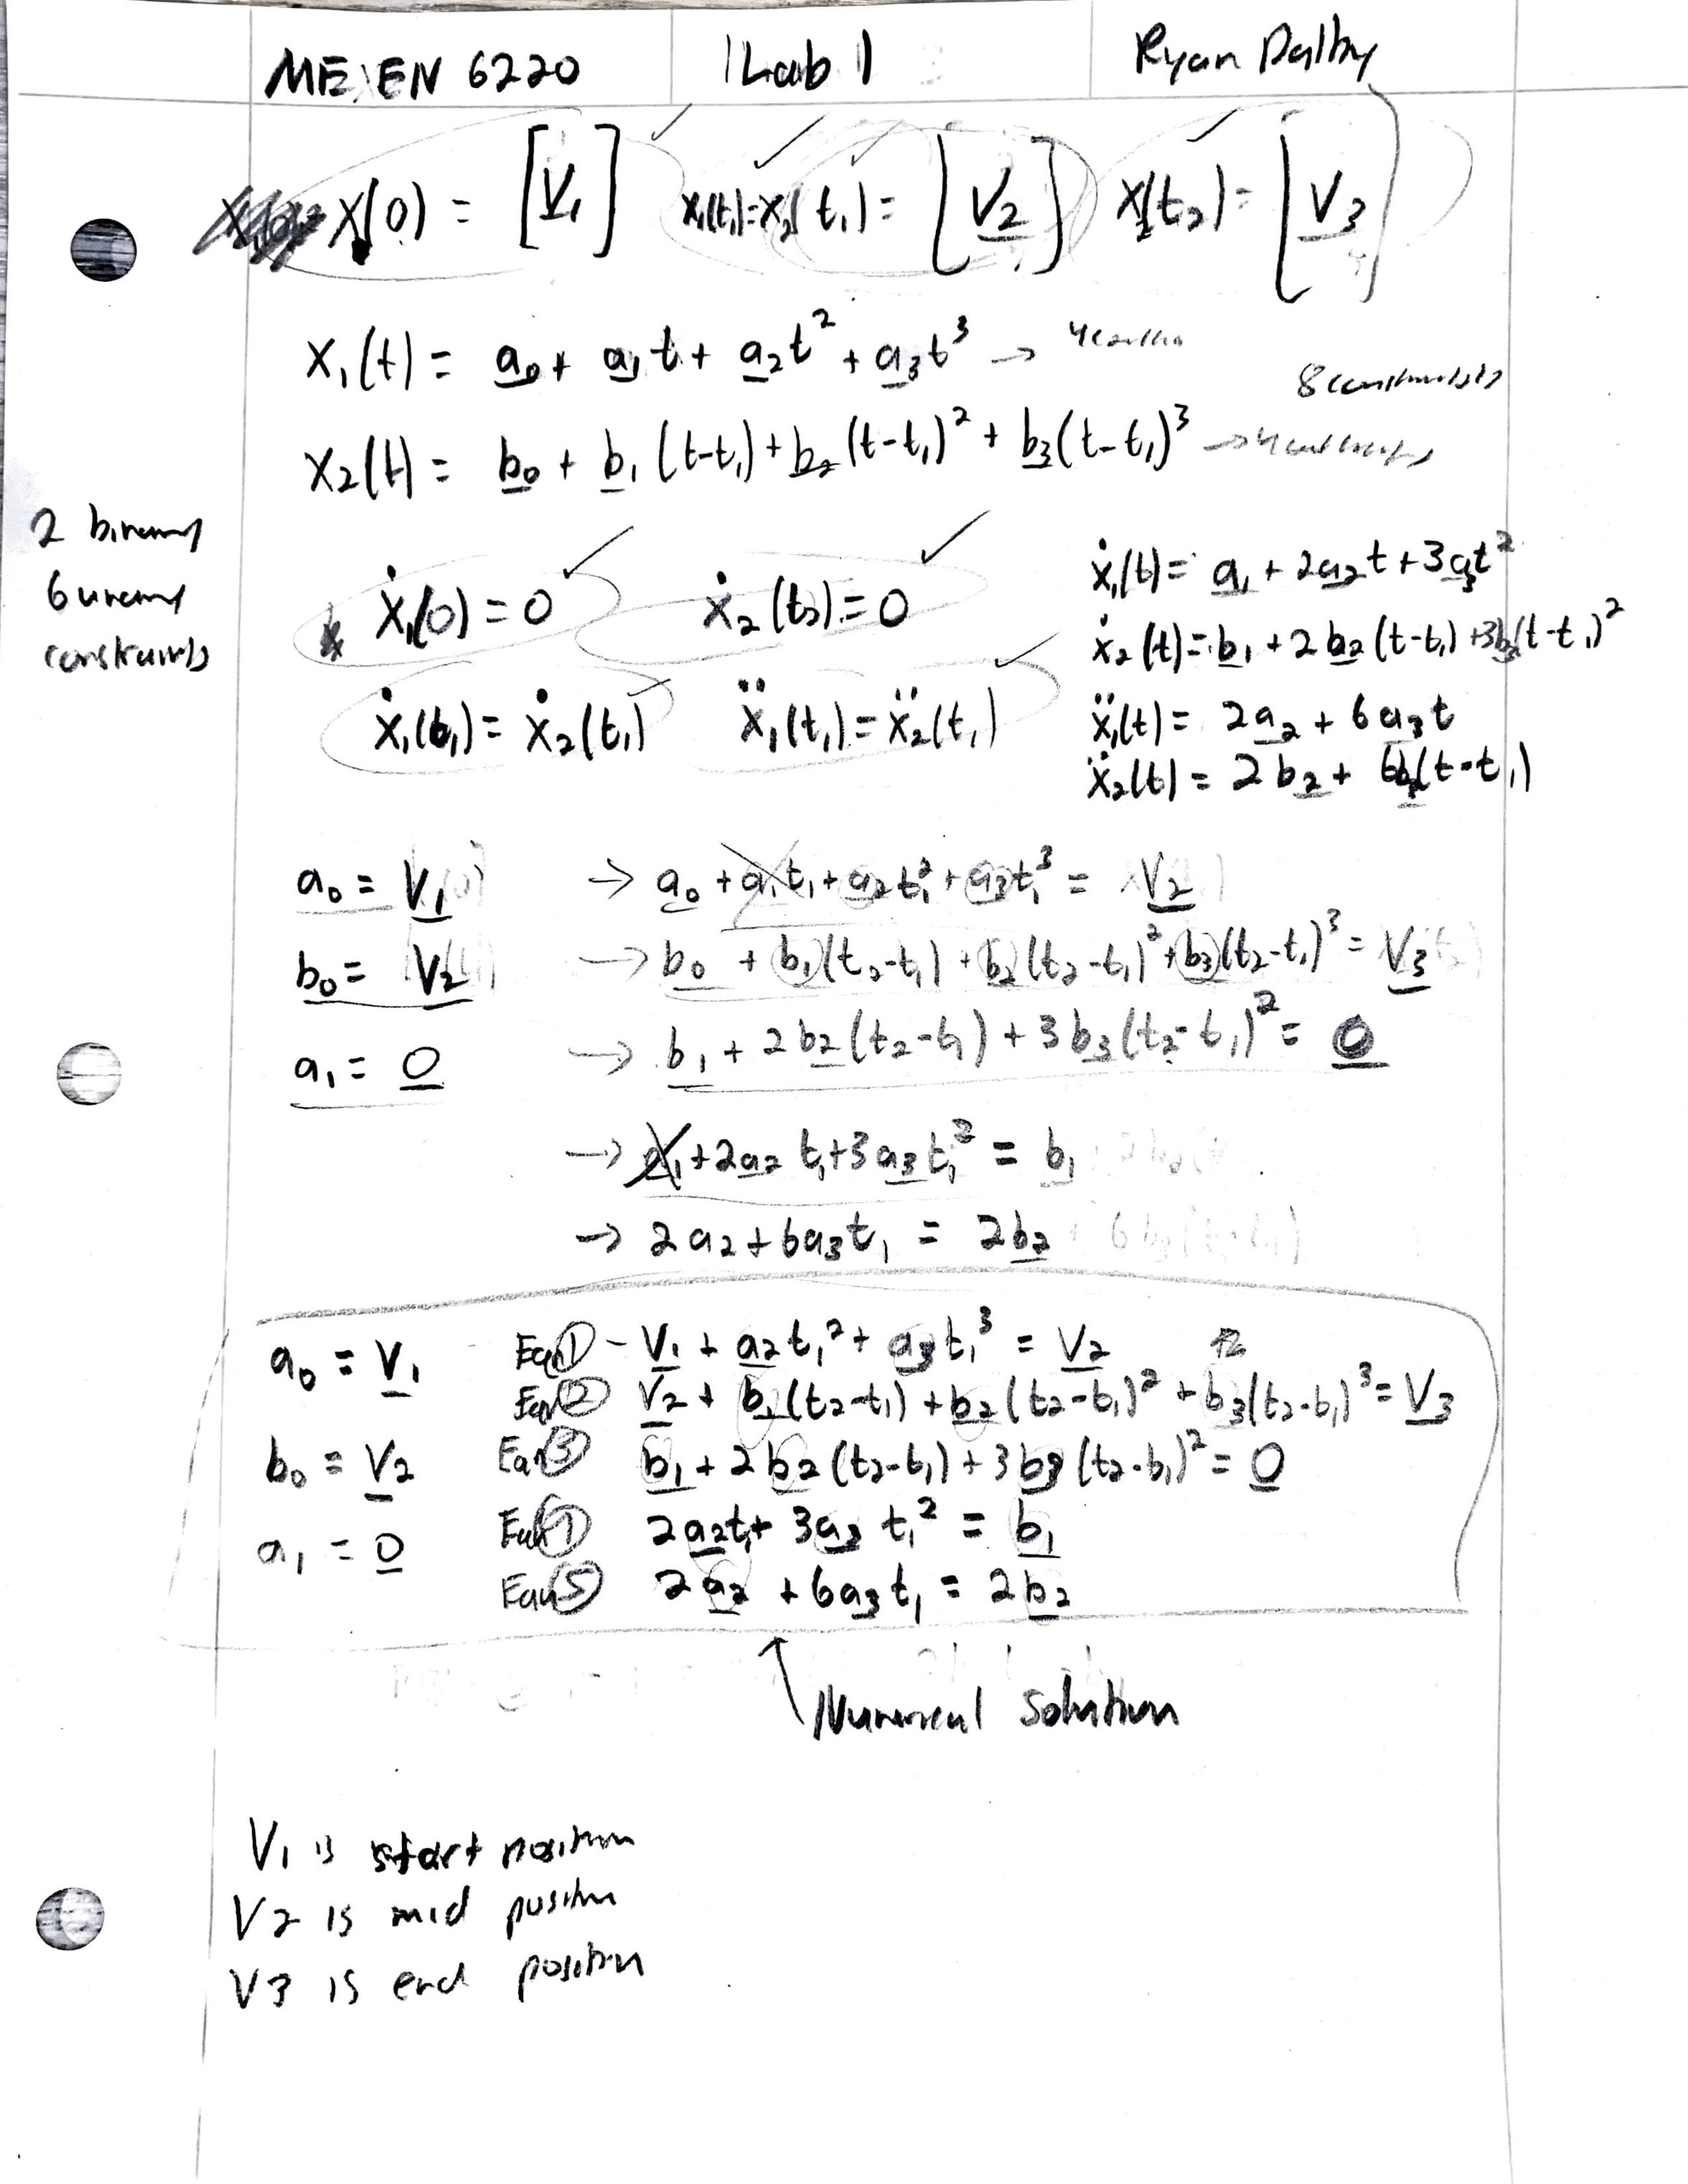 ME EN 6220 Lab 1 Ryan Dalby
x(0) = [V₁] x₁(t₁)=x₂(t₁) = [V₂] x₂(t₂) = [V₃]
x₁(t) = a₀ + a₁t + a₂t² + a₃t³ →
8 constraints
x₂(t) = b₀ + b₁(t-t₁) + b₂(t-t₁)² + b₃(t-t₁)³ →
2 binary
6 unary
constraints
ẋ₁(0) = 0 ẋ₂(t₂) = 0
ẋ₁(t₁) = ẋ₂(t₁) ẍ₁(t₁) = ẍ₂(t₁)
ẋ₁(t) = a₁ + 2a₂t + 3a₃t²
ẋ₂(t) = b₁ + 2b₂(t-t₁) + 3b₃(t-t₁)²
ẍ₁(t) = 2a₂ + 6a₃t
ẍ₂(t) = 2b₂ + 6b₃(t-t₁)
a₀ = V₁ → a₀ + a₁t₁ + a₂t₁² + a₃t₁³ = V₂
b₀ = V₂ → b₀ + b₁(t₂-t₁) + b₂(t₂-t₁)² + b₃(t₂-t₁)³ = V₃
a₁ = 0 → b₁ + 2b₂(t₂-t₁) + 3b₃(t₂-t₁)² = 0
→ a₁ + 2a₂t₁ + 3a₃t₁² = b₁
→ 2a₂ + 6a₃t₁ = 2b₂
a₀ = V₁ Eqn① - V₁ + a₂t₁² + a₃t₁³ = V₂
Eqn② V₂ + b₁(t₂-t₁) + b₂(t₂-t₁)² + b₃(t₂-t₁)³ = V₃
b₀ = V₂ Eqn③ b₁ + 2b₂(t₂-t₁) + 3b₃(t₂-t₁)² = 0
Eqn④ 2a₂t₁ + 3a₃t₁² = b₁
a₁ = 0
Eqn⑤ 2a₂ + 6a₃t₁ = 2b₂
Numerical solution
V₁ is start position
V2 is mid position
V3 is end position